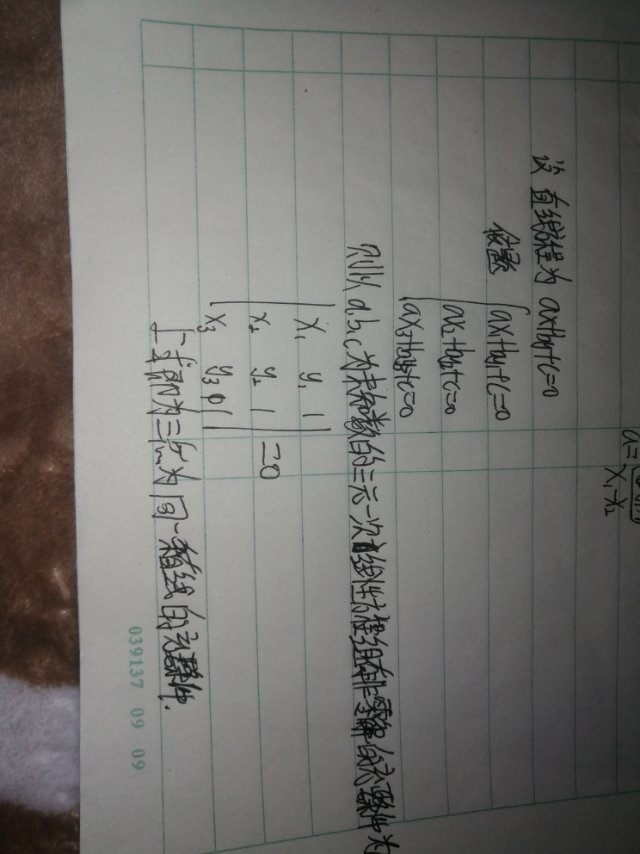 a=
x₁-x₂
设直线方程为 ax+by+c=0
依题 { ax₁+by₁+c=0
ax₂+by₂+c=0
ax₃+by₃+c=0
则以a,b,c为未知数的三元一次齐线性方程组有非零解的充要条件为
| x₁ y₁ 1 |
| x₂ y₂ 1 | =0
| x₃ y₃ 1 |
上式即为三点为同一直线的充要条件.
039137 09 09